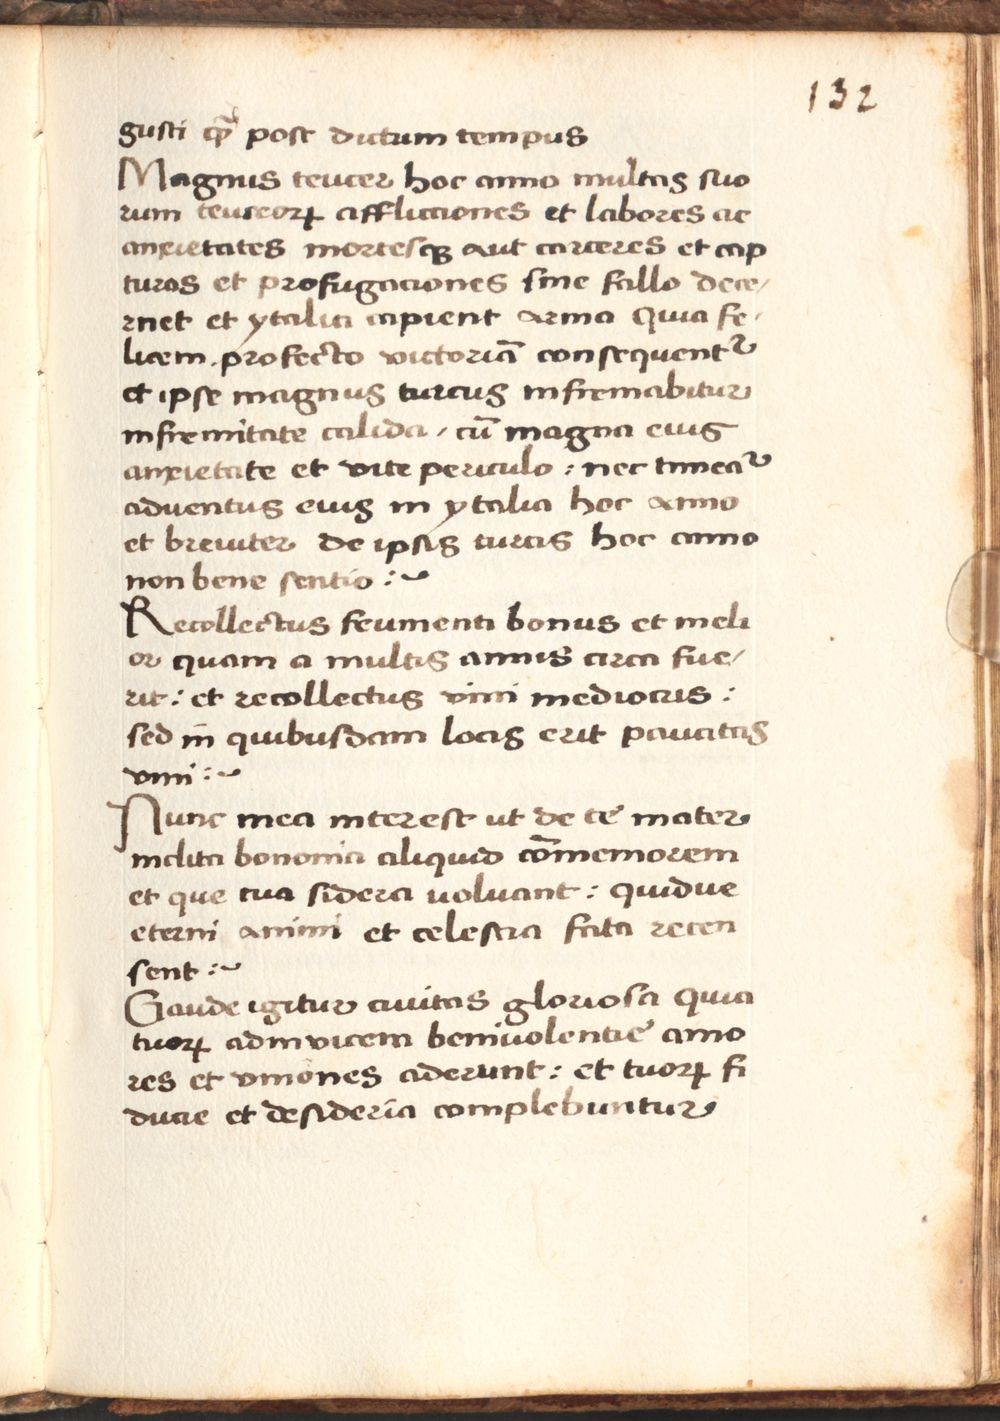 132
gusti qꝫ̄ post dictum tempus
Magnus teucer hoc anno multas suo
rum teucroꝝ afflictiones et labores ac
anxietates mortesqꝫ aut carceres et cap
turas et profugaciones sine fallo dece/
rnet et ytalia capient arma Quia fe/
licem . profecto victoriā consequentʳ
et ipse magnus turcus infirmabitur
infirmitate calida / cū magna eius
anxietate et vite periculo : nec timeaʳ
adventus eius in ytalia hoc anno
et breviter de ipsis turcis hoc anno
non bene sentio :~
Recollectus frumenti bonus et meli
or quam a multis annis circa fue/
rit : et recollectus vini mediocris :
sed in̄ quibusdam locis erit paucitas
vini :~
Nunc mea interest ut de te mater
inclita bononia aliquid cōmemorem
et que tua sidera voluant : quidve
eterni animi et celestia fata recen
sent :~
Gaude igitur civitas gloriosa Quia
tuoꝝ adinvicem benivolentie amo
res et vniones aderunt : et tuoꝝ fi
ducie et desideria complebuntur